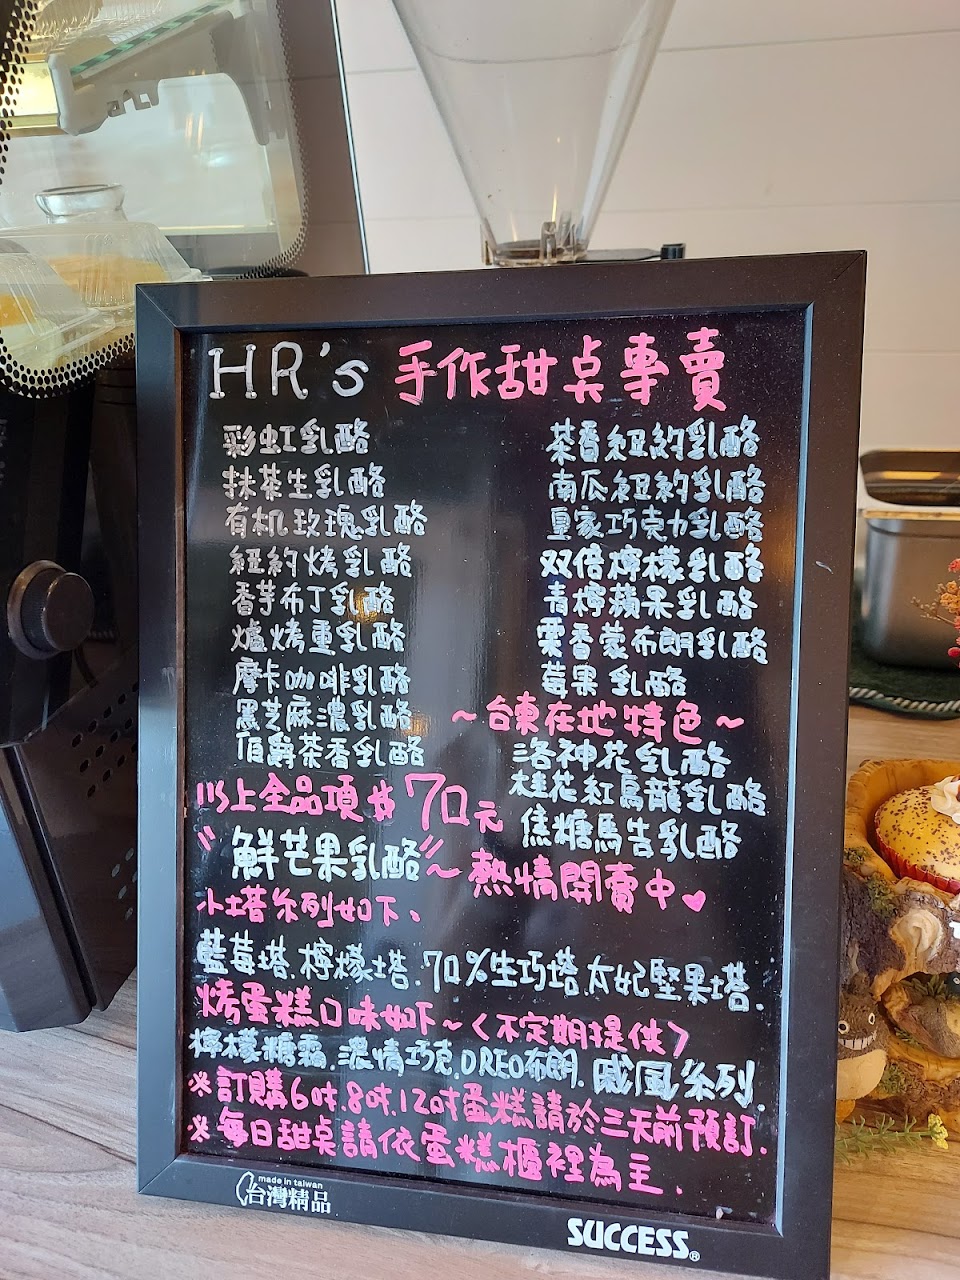 HR's 手作甜桌專賣
彩虹乳酪
抹茶生乳酪
有机玫瑰乳酪
紐約烤乳酪
香芋布丁乳酪
爐烤重乳酪
摩卡咖啡乳酪
黑芝麻濃乳酪
伯爵茶香乳酪
茶香紐約乳酪
南瓜紐約乳酪
皇家巧克力乳酪
双倍檸檬乳酪
青檸蘋果乳酪
栗香蒙布朗乳酪
莓果乳酪
~台東在地特色~
洛神花乳酪
桂花紅烏龍乳酪
焦糖馬告乳酪
以上全品項$70元
"鮮芒果乳酪"~熱情開賣中♥
小塔系列如下、
藍莓塔.檸檬塔.70%生巧塔.太妃堅果塔.
烤蛋糕口味如下~〈不定期提供〉
檸檬糖霜.濃情巧克.OREO布朗.戚風系列.
※訂購6吋.8吋.12吋蛋糕請於三天前預訂.
※每日甜桌請依蛋糕櫃裡為主.
made in taiwan
台灣精品
SUCCESS®